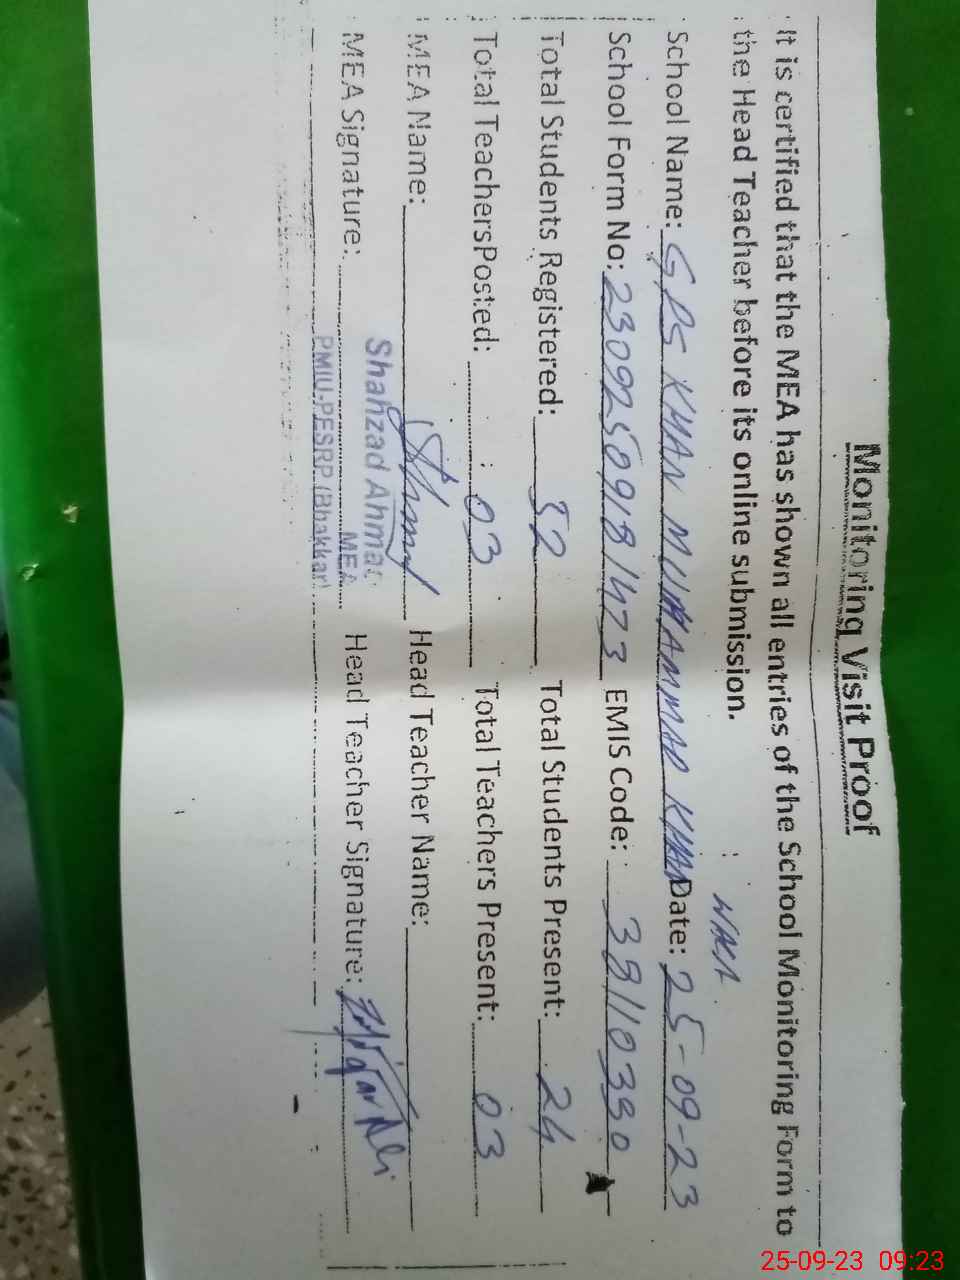 Monitoring Visit Proof
It is certified that the MEA has shown all entries of the School Monitoring Form to
the Head Teacher before its online submission.
School Name: GPS KHAN MUHAMMAD KHAN WALA Date: 25-09-23
School Form No: 23092509181473 EMIS Code: 38110330
Total Students Registered: 32 Total Students Present: 24
Total TeachersPosted: 03 Total Teachers Present: 03
MEA Name: Head Teacher Name:
MEA Signature: Head Teacher Signature:
Shahzad Ahmad
MEA
PMIU-PESRP (Bhakkar)
25-09-23 09:23